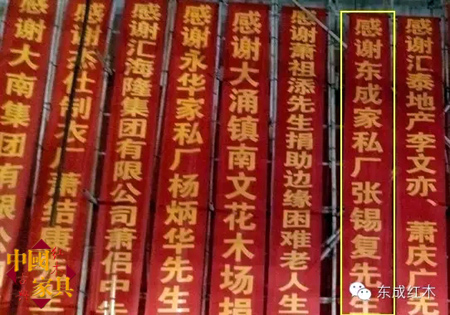 感谢大南集团有限公
感谢杰仕制衣厂萧结
感谢汇海隆集团有限公司萧侣中
感谢永华家私厂杨炳华先生
感谢大涌镇南文花木场捐
感谢萧祖添先生捐助边缘困难老人生
感谢东成家私厂张锡复先
感谢汇泰地产李文亦、萧庆广
中國家具
东成红木